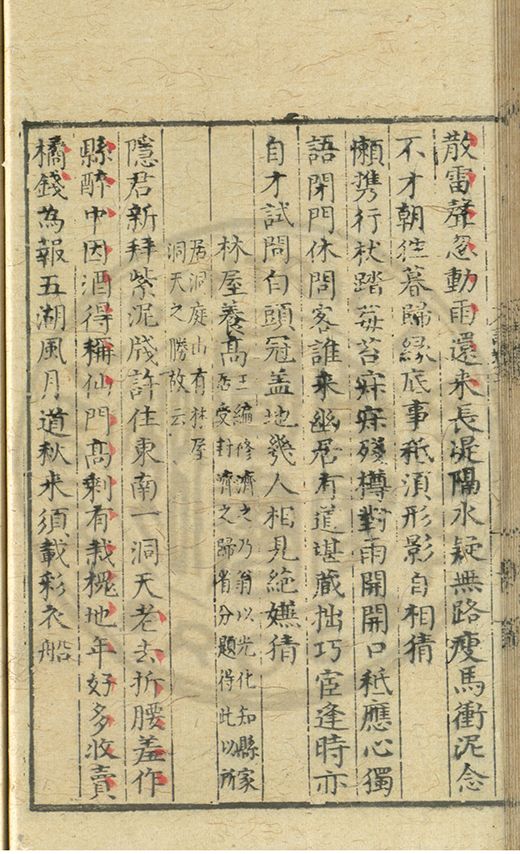 散雷聲忽動雨還来長堤隔水疑無路瘦馬衝泥念
不才朝徃暮歸緣底事秪湏形影自相猜
懶携行杖踏莓苔寂寂殘樽對雨開開口秪應心獨
語閉門休問客誰来幽居有道堪藏拙巧宦逢時亦
自才試問白頭冠盖地幾人相見絶嫌猜
林屋養髙王編修濟之乃翁以光化知縣家
居受封濟之歸省分題得此以所
居洞庭山有林屋
洞天之勝故云
隱君新拜紫泥牋許住東南一洞天老去折腰羞作
縣醉中因酒得稱仙門髙剩有栽槐地年好多收賣
橘錢為報五湖風月道秋来須載彩衣船